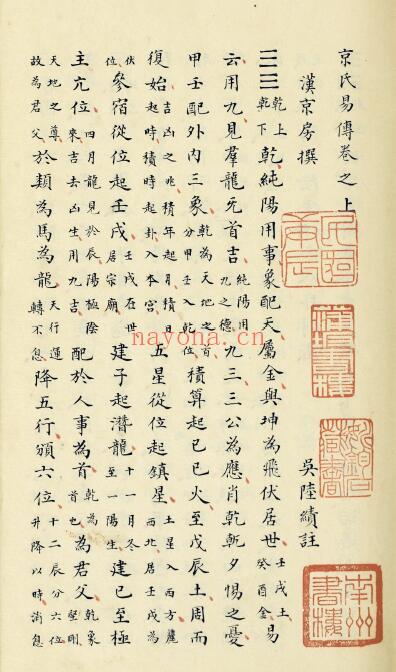 京氏易傳卷之上
漢京房撰 吳陸績註
☰☰乾上乾下乾純陽用事象配天屬金與坤為飛伏居世壬戌土癸酉金易
云用九見羣龍无首吉純陽用九之德九三三公為應肖乾乾夕惕之憂
甲壬配外內三象乾為天地之首分甲壬入乾位積算起己巳火至戊辰土周而
復始吉凶之兆積年起月積日起時積時起卦入本宮五星從位起鎮星土星入西方麗西北居壬戌為
伏位參宿從位起壬戌壬戌在世居宗廟建子起潛龍十一月冬至一陽生建巳至極
主亢位四月龍見於辰陽極陰來吉去凶生用九吉配於人事為首乾為首也為君父乾象堅剛
天地之尊故為君父於類為馬為龍天行運轉不息降五行頒六位十二辰分六位升降以時消息
南州書樓
nayona.cn